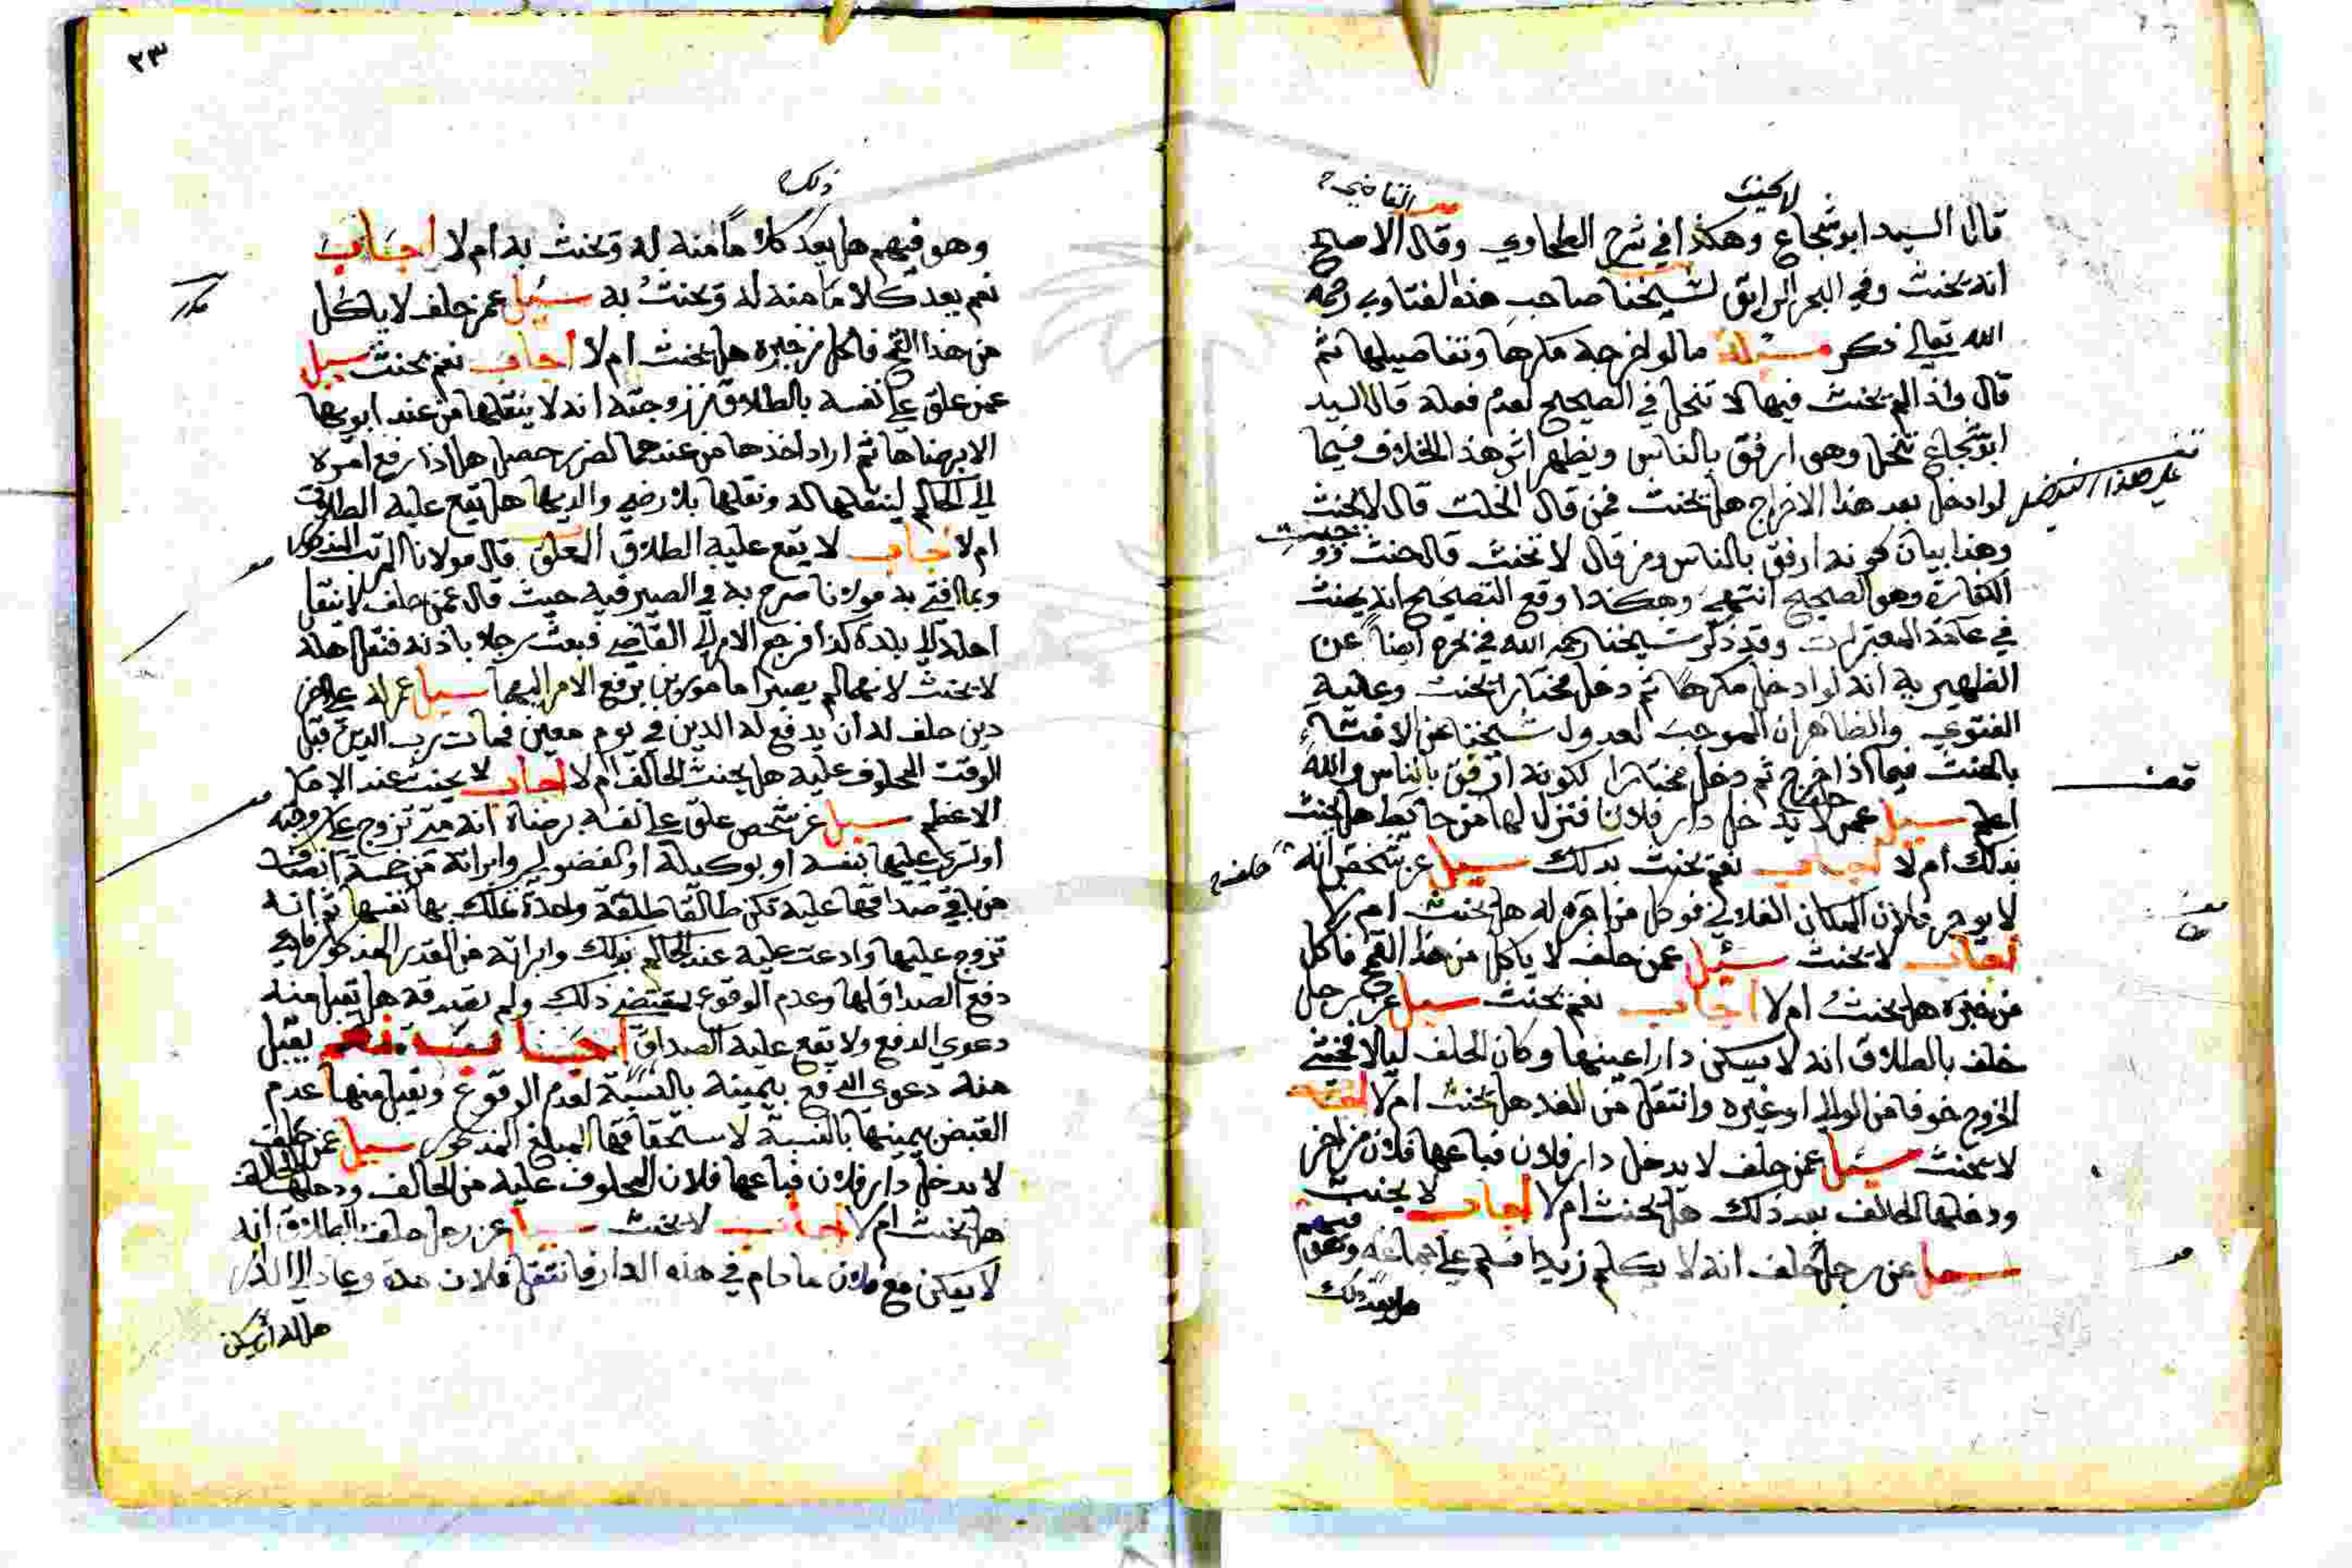 لا يحنث
قال السيد ابو شجاع وهكذا في شرح الطحاوي وقال القاضي الاصح
انه يحنث وفي البحر الرايق لشيخنا صاحب هذه الفتاوي رحمه
الله تعالى ذكر مسئلة ما لو اخرجه مكرها وتفاصيلها ثم
قال واذا لم يحنث فيها لا تنحل في الصحيح لعدم فعله قال السيد
ابو شجاع تنحل وهو ارفق بالناس ويظهر اثر هذا الخلاف فيما
لو ادخل بعد هذا الاخراج هل يحنث فمن قال انحلت قال لا يحنث
وهذا بيان كونه ارفق بالناس ومن قال لا تحنث قال حنث ووجبت
الكفارة وهو الصحيح انتهى وهكذا وقع التصحيح انه يحنث
في عامة المعتبرات وقد ذكر شيخنا رحمه الله في بحره ايضا عن
الظهيرية انه لو ادخل مكرها ثم دخل مختارا يحنث وعليه
الفتوي والظاهر ان الموجب لعدول شيخنا عن الافتاء
بالحنث فيما اذا خرج ثم دخل مختارا لكونه ارفق بالناس والله
اعلم سيل عمن حلف لا يدخل دار فلان فنزل لها من حايط هل يحنث
بذلك ام لا اجاب نعم يحنث بذلك سيل عن شخص حلف انه
لا يوجر فلان المكان الفلاني فوكل من اجره له هل يحنث ام لا
اجاب لا يحنث سئيل عمن حلف لا ياكل من هذا القمح فاكل
من خبزه هل يحنث ام لا اجاب نعم يحنث سيل عن رجل
حلف بالطلاق انه لا يسكن دارا عينها وكان الحلف ليلا فخشي
الخروج خوفا من الوالي او غيره وانتقل من الغد هل يحنث ام لا اجاب
لا يحنث سئيل عمن حلف لا يدخل دار فلان فباعها فلان من اخر
ودخلها الحالف بعد ذلك هل يحنث ام لا اجاب لا يحنث
سيل عن رجل حلف انه لا يكلم زيدا فسلم علي جماعه وهو فيهم
هل يعد ذلك
٢٣
ذلك
وهو فيهم هل يعد كلاما منه له ويحنث به ام لا اجاب
نعم يعد كلاما منه له ويحنث به سئيل عمن حلف لا ياكل
من هذا القمح فاكل من خبزه هل يحنث ام لا اجاب نعم يحنث سيل
عمن علق على نفسه بالطلاق من زوجته انه لا ينقلها من عند ابويها
الا برضاها ثم اراد اخذها من عندهما لضرر حصل هل اذا رفع امره
الي الحاكم لينقلها له ونقلها بلا رضي والديها هل يقع عليه الطلاق
ام لا اجاب لا يقع عليه الطلاق المعلق قال مولانا المرتب المذكور
وما افتي به مولانا صرح به في الصيرفية حيث قال عمن حلف لا ينقل
اهله الي بلدة كذا فرجع الامر الي القاضي فبعث رجلا باذنه فنقل اهله
لا يحنث لانهما لم يصيرا مامورين برفع الامر اليهما سيل عمن له علي اخر
دين حلف له ان يدفع له الدين في يوم معين فمات رب الدين قبل
الوقت المحلوف عليه هل يحنث الحالف ام لا اجاب لا يحنث عند الامام
الاعظم سيل عن شخص علق علي نفسه برضاه انه متي تزوج علي زوجته
او تسري عليها بنفسه او بوكيله او الفضولي وابراته من خمسة انصاف
من باقي صداقها عليه تكن طالقا طلقة واحدة تملك بها نفسها ثم انه
تزوج عليها وادعت عليه عند الحاكم بذلك وابراته من القدر المذكور فادعي
دفع الصداق لها وعدم الوقوع بمقتضي ذلك ولم تصدقه هل تقبل منه
دعوي الدفع ولا يقع عليه الصداق اجاب نعم يقبل
منه دعوي الدفع بيمينه بالنسبة لعدم الوقوع وتقبل منها عدم
القبض بيمينها بالنسبة لاستحقاقها المبلغ المذكور سيل عمن حلف
لا يدخل دار فلان فباعها فلان المحلوف عليه من الحالف ودخلها الحالف
هل يحنث ام لا اجاب لا يحنث سيل عن رجل حلف بالطلاق انه
لا يسكن مع فلان ما دام في هذه الدار فانتقل فلان مدة وعاد الي الدار
هل له ان يسكن